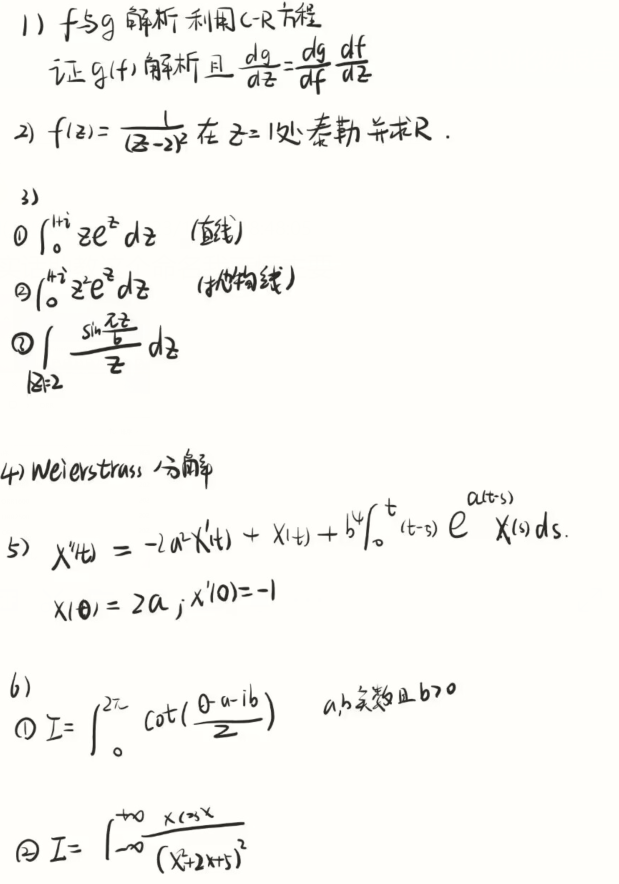 1) f与g 解析 利用C-R方程
证 g(f) 解析 且 dg/dz = dg/df df/dz
2) f(z) = 1/(z-2)² 在 z=1处 泰勒 并求R.
3)
① ∫₀^(1+i) ze^z dz (直线)
② ∫₀^(1+i) z²e^z dz (抛物线)
③ ∫_(|z|=2) (sin πz/6)/z dz
4) Weierstrass 分解
5) X''(t) = -2a²X'(t) + X(t) + b⁴∫₀^t (t-s) e^(a(t-s)) X(s) ds.
X(0) = 2a ; X'(0) = -1
6)
① I = ∫₀^(2π) cot((θ-a-ib)/2) a,b实数且b>0
② I = ∫_(-∞)^(+∞) xcosx/(x²+2x+5)²